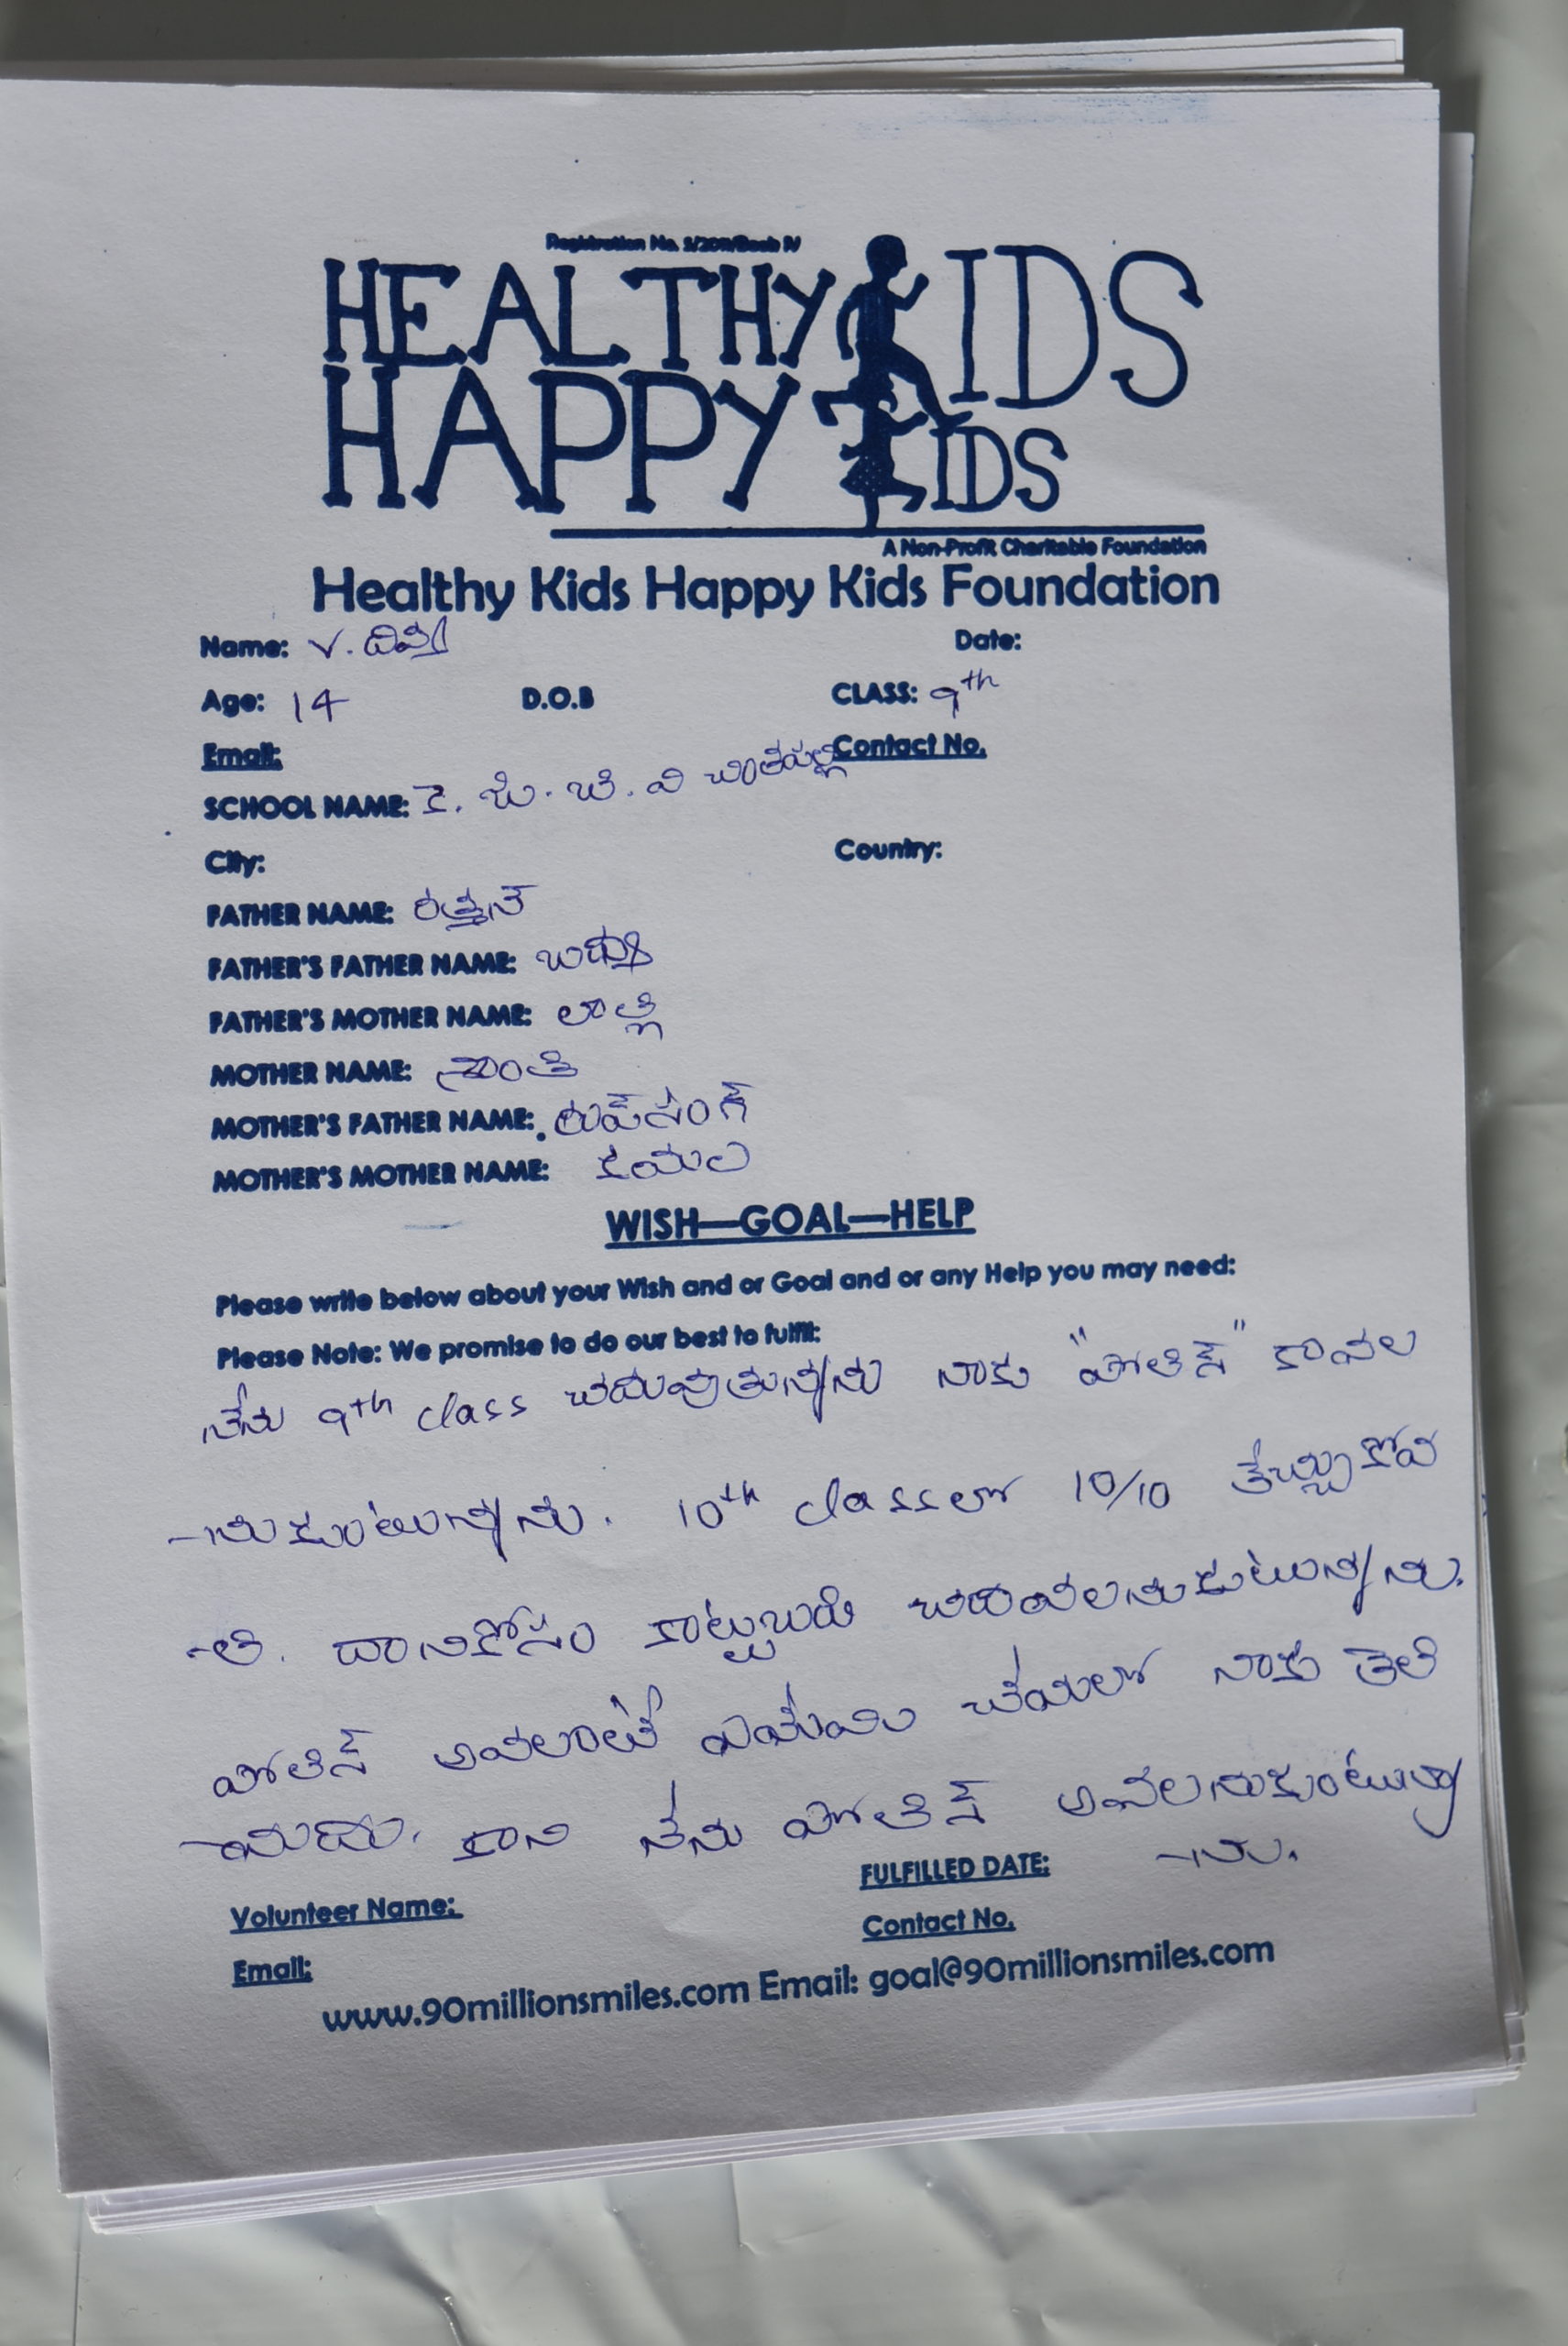 Registration No. 5/2011/Book IV
HEALTHY KIDS
HAPPY KIDS
A Non-Profit Charitable Foundation
Healthy Kids Happy Kids Foundation
Name: V. Date:
Age: 14 D.O.B CLASS: 9th
Email: Contact No.
SCHOOL NAME: కె. జి. బి. వి చింతపల్లి
City: Country:
FATHER NAME: రత్తన్
FATHER'S FATHER NAME:
FATHER'S MOTHER NAME: లాల్లి
MOTHER NAME: శాంతి
MOTHER'S FATHER NAME: రుప్‌సంగ్
MOTHER'S MOTHER NAME: కమల
WISH—GOAL—HELP
Please write below about your Wish and or Goal and or any Help you may need:
Please Note: We promise to do our best to fulfill:
నేను 9th class చదువుతున్నాను నాకు "పోలిస్" కావల
-నుకుంటున్నాను. 10th classలో 10/10 తేచ్చుకోవ
-లి. దానికోసం కాట్టుబడి చదివలనుకుటున్నాను.
పోలిస్ అవలాంటే ఏమేమి చేయలో నాకు తెలి
-యదు. కాని నేను పోలిస్ అవలనుకుంటున్నా
-ను.
FULFILLED DATE:
Volunteer Name:
Contact No.
Email:
www.90millionsmiles.com Email: goal@90millionsmiles.com